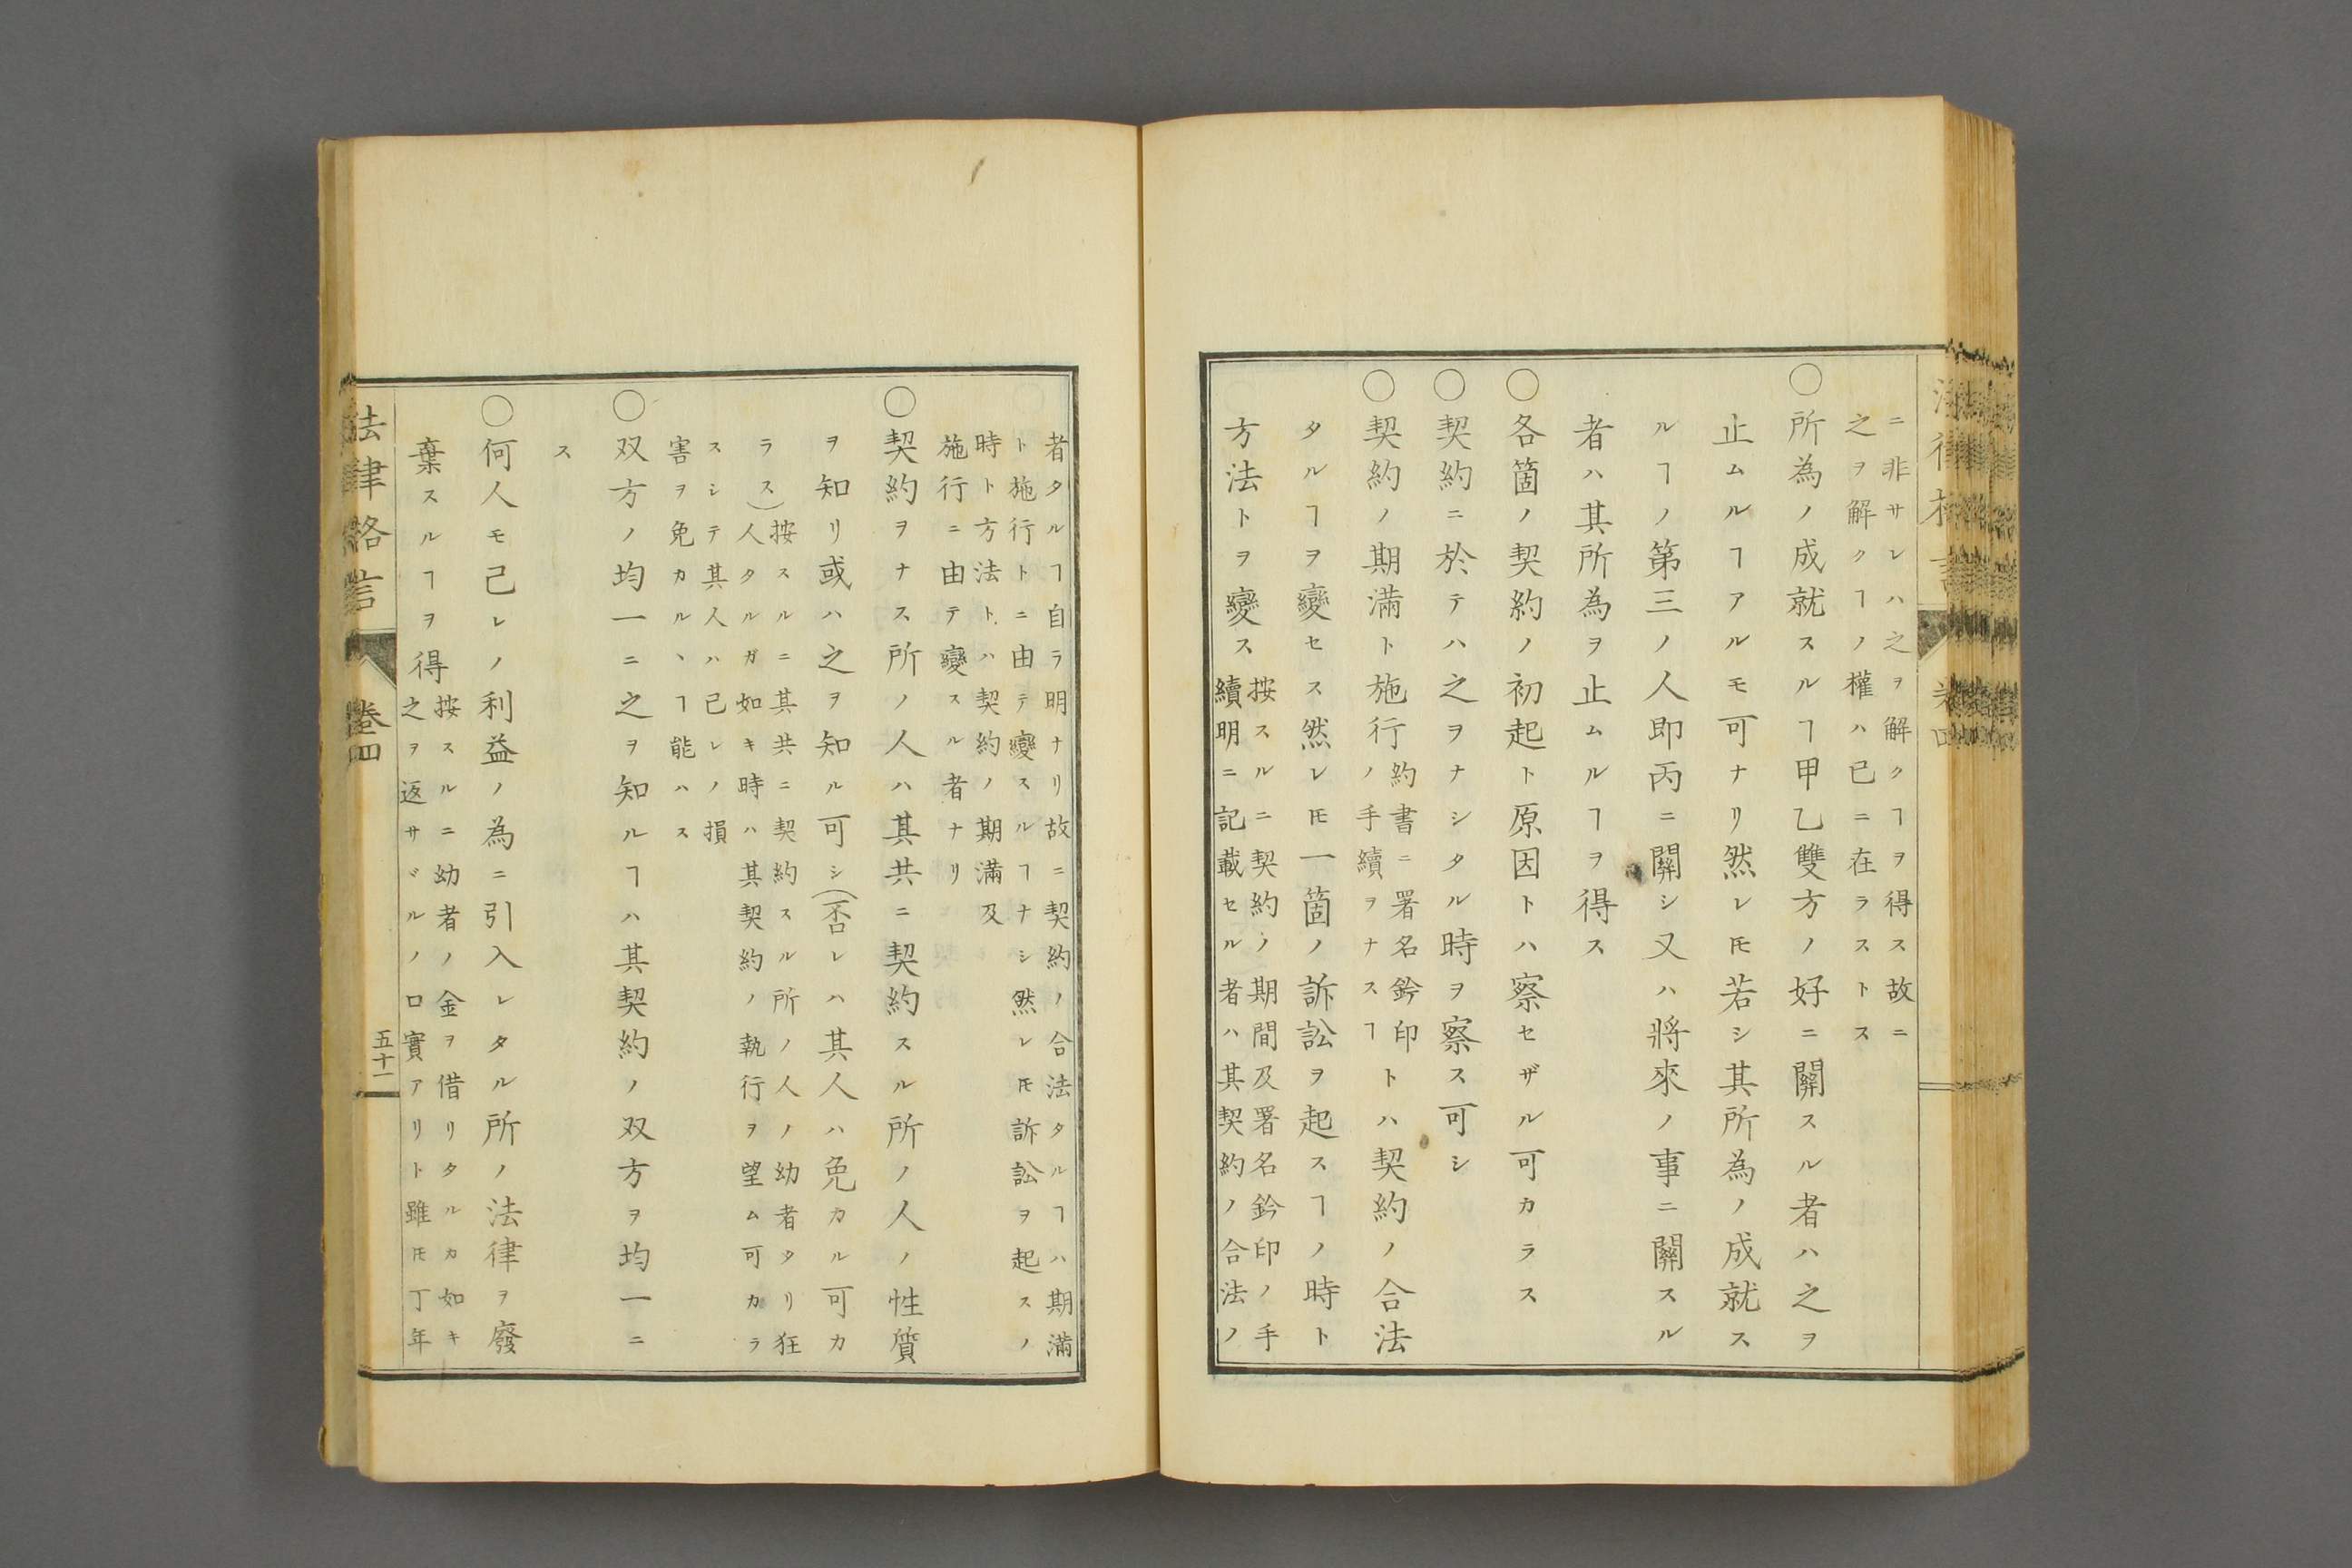 ニ非サレハ之ヲ解クヿヲ得ス故ニ
之ヲ解クヿノ權ハ已ニ在ラストス
○所為ノ成就スルヿ甲乙雙方ノ好ニ關スル者ハ之ヲ
止ムルヿアルモ可ナリ然レ𪜈若シ其所為ノ成就ス
ルヿノ第三ノ人即丙ニ關シ又ハ將來ノ事ニ關スル
者ハ其所為ヲ止ムルヿヲ得ス
○各箇ノ契約ノ初起ト原因トハ察セザル可カラス
○契約ニ於テハ之ヲナシタル時ヲ察ス可シ
○契約ノ期滿ト施行
約書ニ署名鈐印
ノ手續ヲナスヿ
トハ契約ノ合法
タルヿヲ變セス然レ𪜈一箇ノ訴訟ヲ起スヿノ時ト
方法トヲ變ス
按スルニ契約ノ期間及署名鈐印ノ手
續明ニ記載セル者ハ其契約ノ合法ノ
者タルヿ自ラ明ナリ故ニ契約ノ合法タルヿハ期滿
ト施行トニ由テ變スルヿナシ然レ𪜈訴訟ヲ起スノ
時ト方法トハ契約ノ期滿及
施行ニ由テ變スル者ナリ
○契約ヲナス所ノ人ハ其共ニ契約スル所ノ人ノ性質
ヲ知リ或ハ之ヲ知ル可シ(否レハ其人ハ免カル可カ
ラス)
按スルニ其共ニ契約スル所ノ人ノ幼者タリ狂
人タルガ如キ時ハ其契約ノ執行ヲ望ム可カラ
スシテ其人ハ己レノ損
害ヲ免カルヽヿ能ハス
○双方ノ均一ニ之ヲ知ルヿハ其契約ノ双方ヲ均一ニ
ス
○何人モ己レノ利益ノ為ニ引入レタル所ノ法律ヲ廢
棄スルヿヲ得
按スルニ幼者ノ金ヲ借リタルカ如キ
之ヲ返サヾルノ口實アリト雖𪜈丁年
法律格言
卷四
五十一